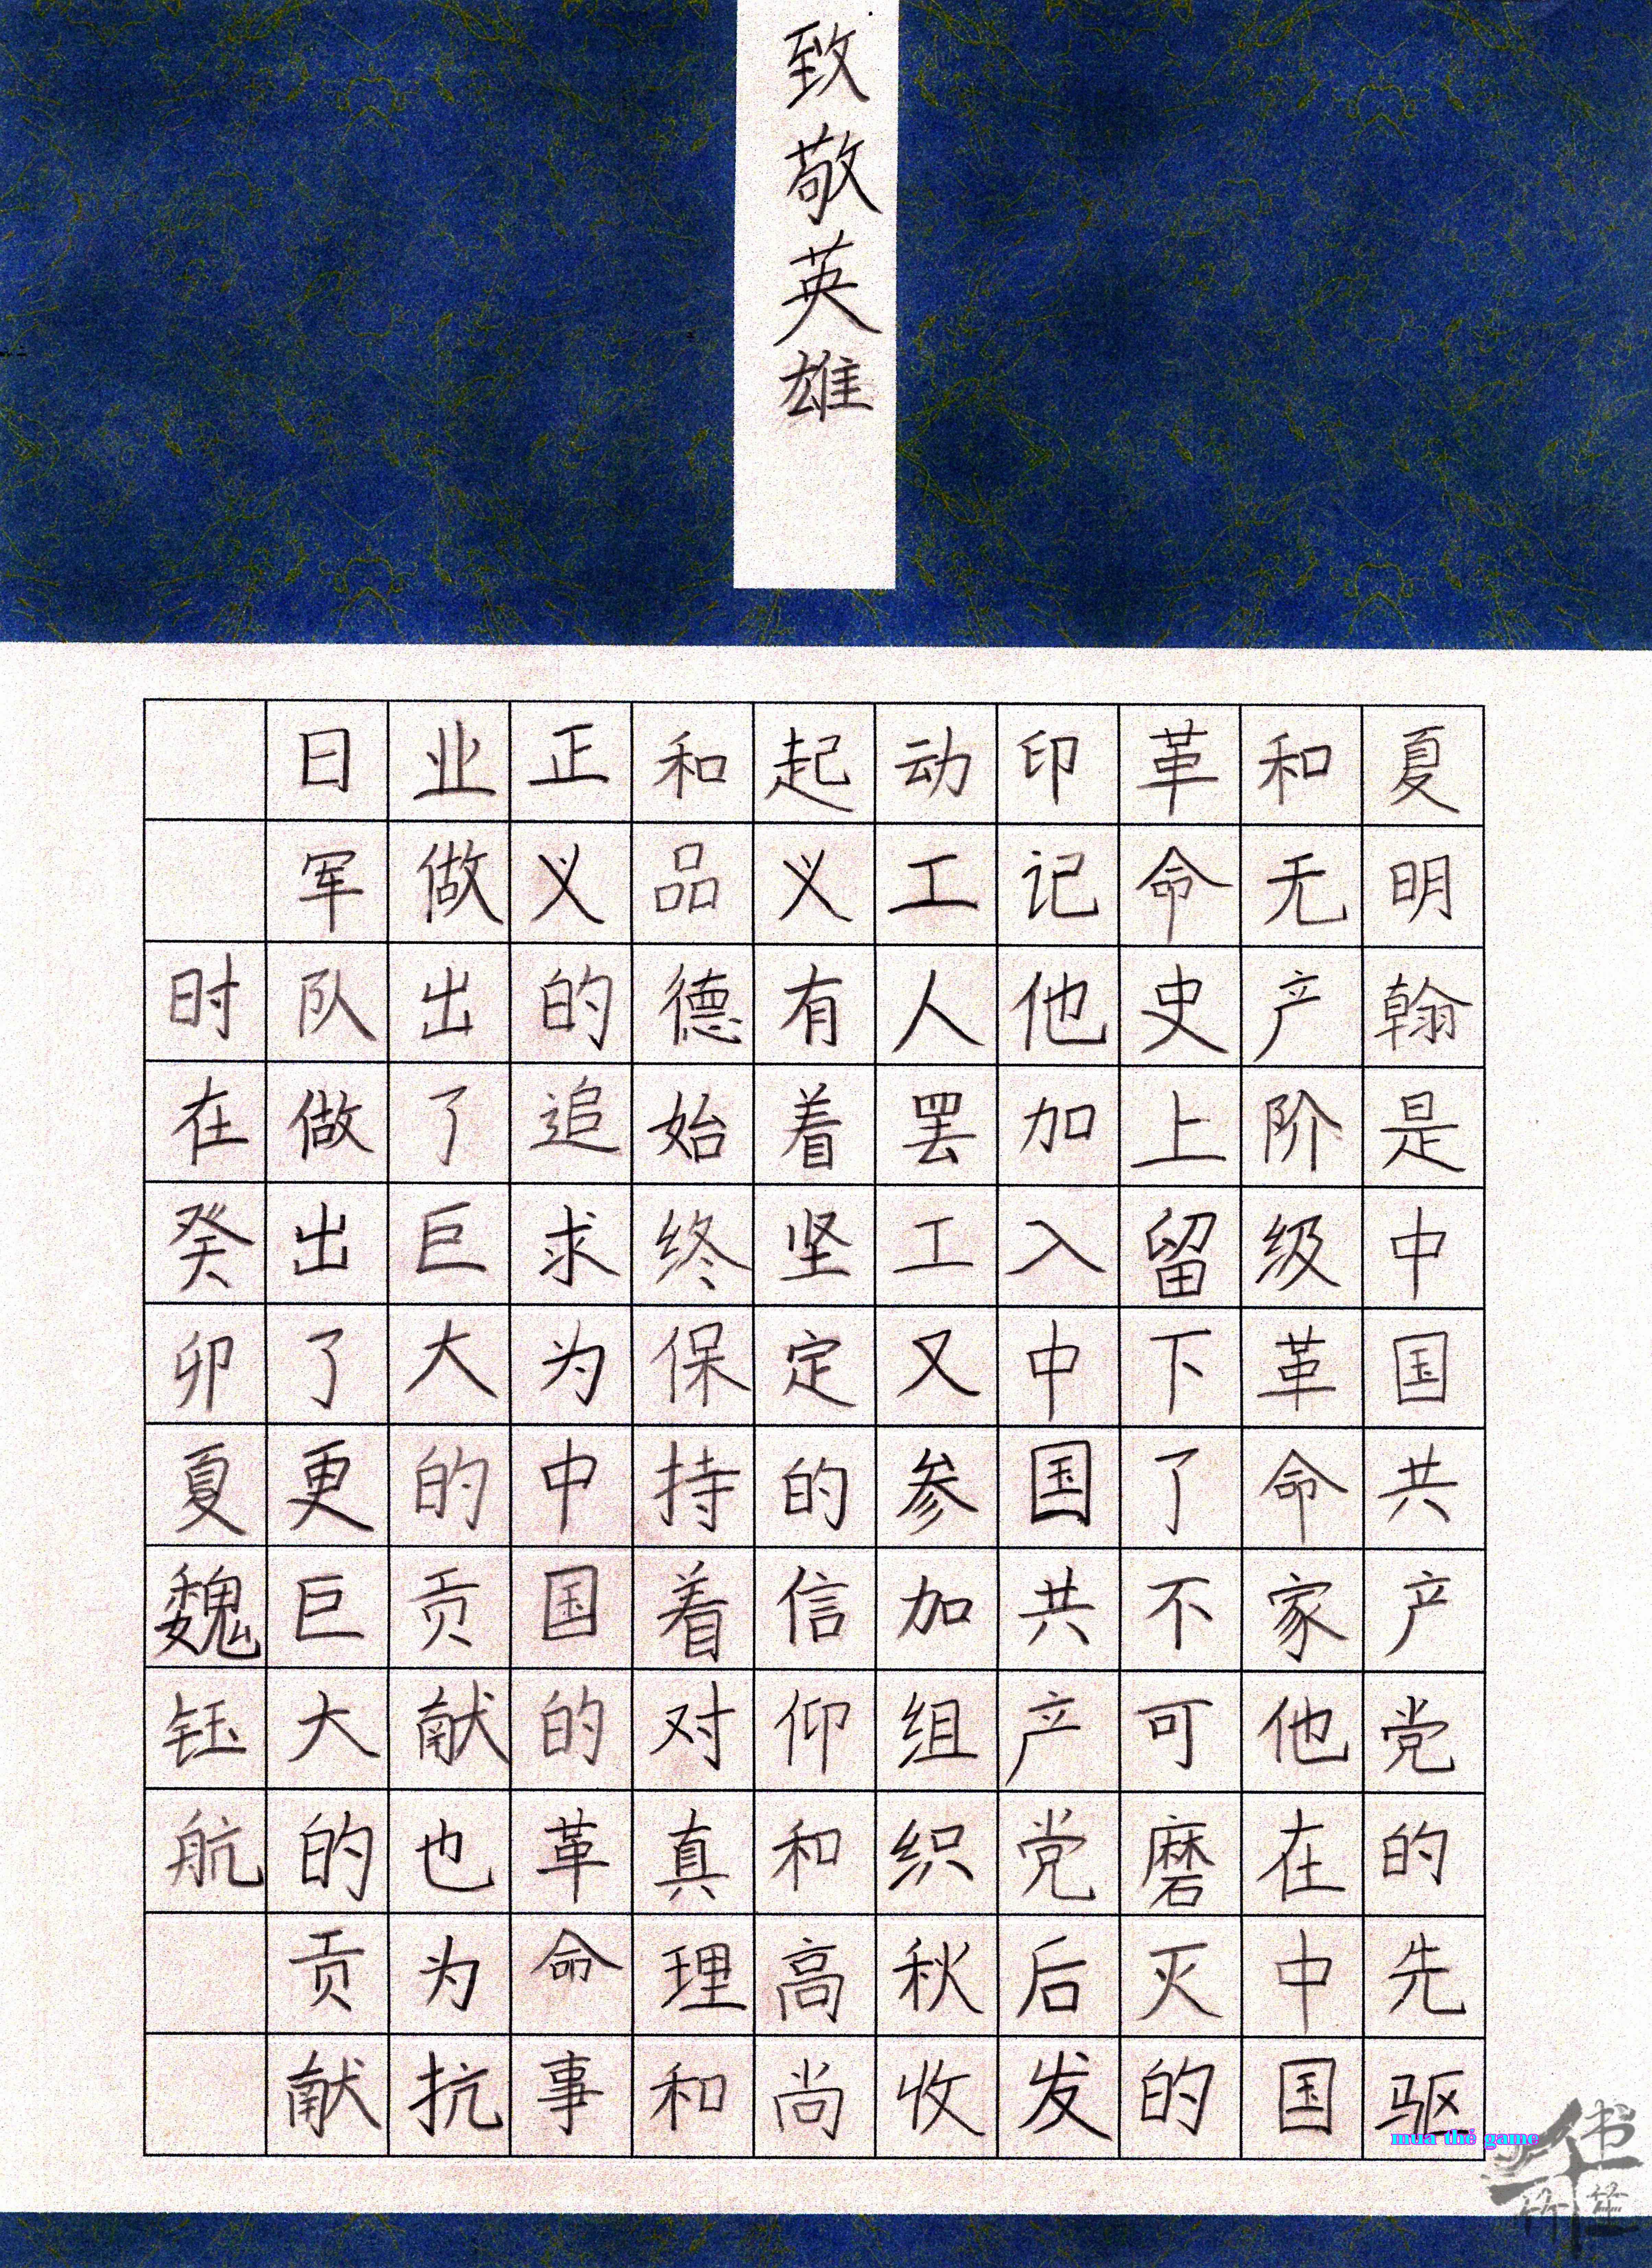 致敬英雄
夏明翰是中国共产党的先驱
和无产阶级革命家他在中国
革命史上留下了不可磨灭的
印记他加入中国共产党后发
动工人罢工又参加组织秋收
起义有着坚定的信仰和高尚
和品德始终保持着对真理和
正义的追求为中国的革命事
业做出了巨大的贡献也为抗
日军队做出了更巨大的贡献
时在癸卯夏魏钰航
mua thẻ game